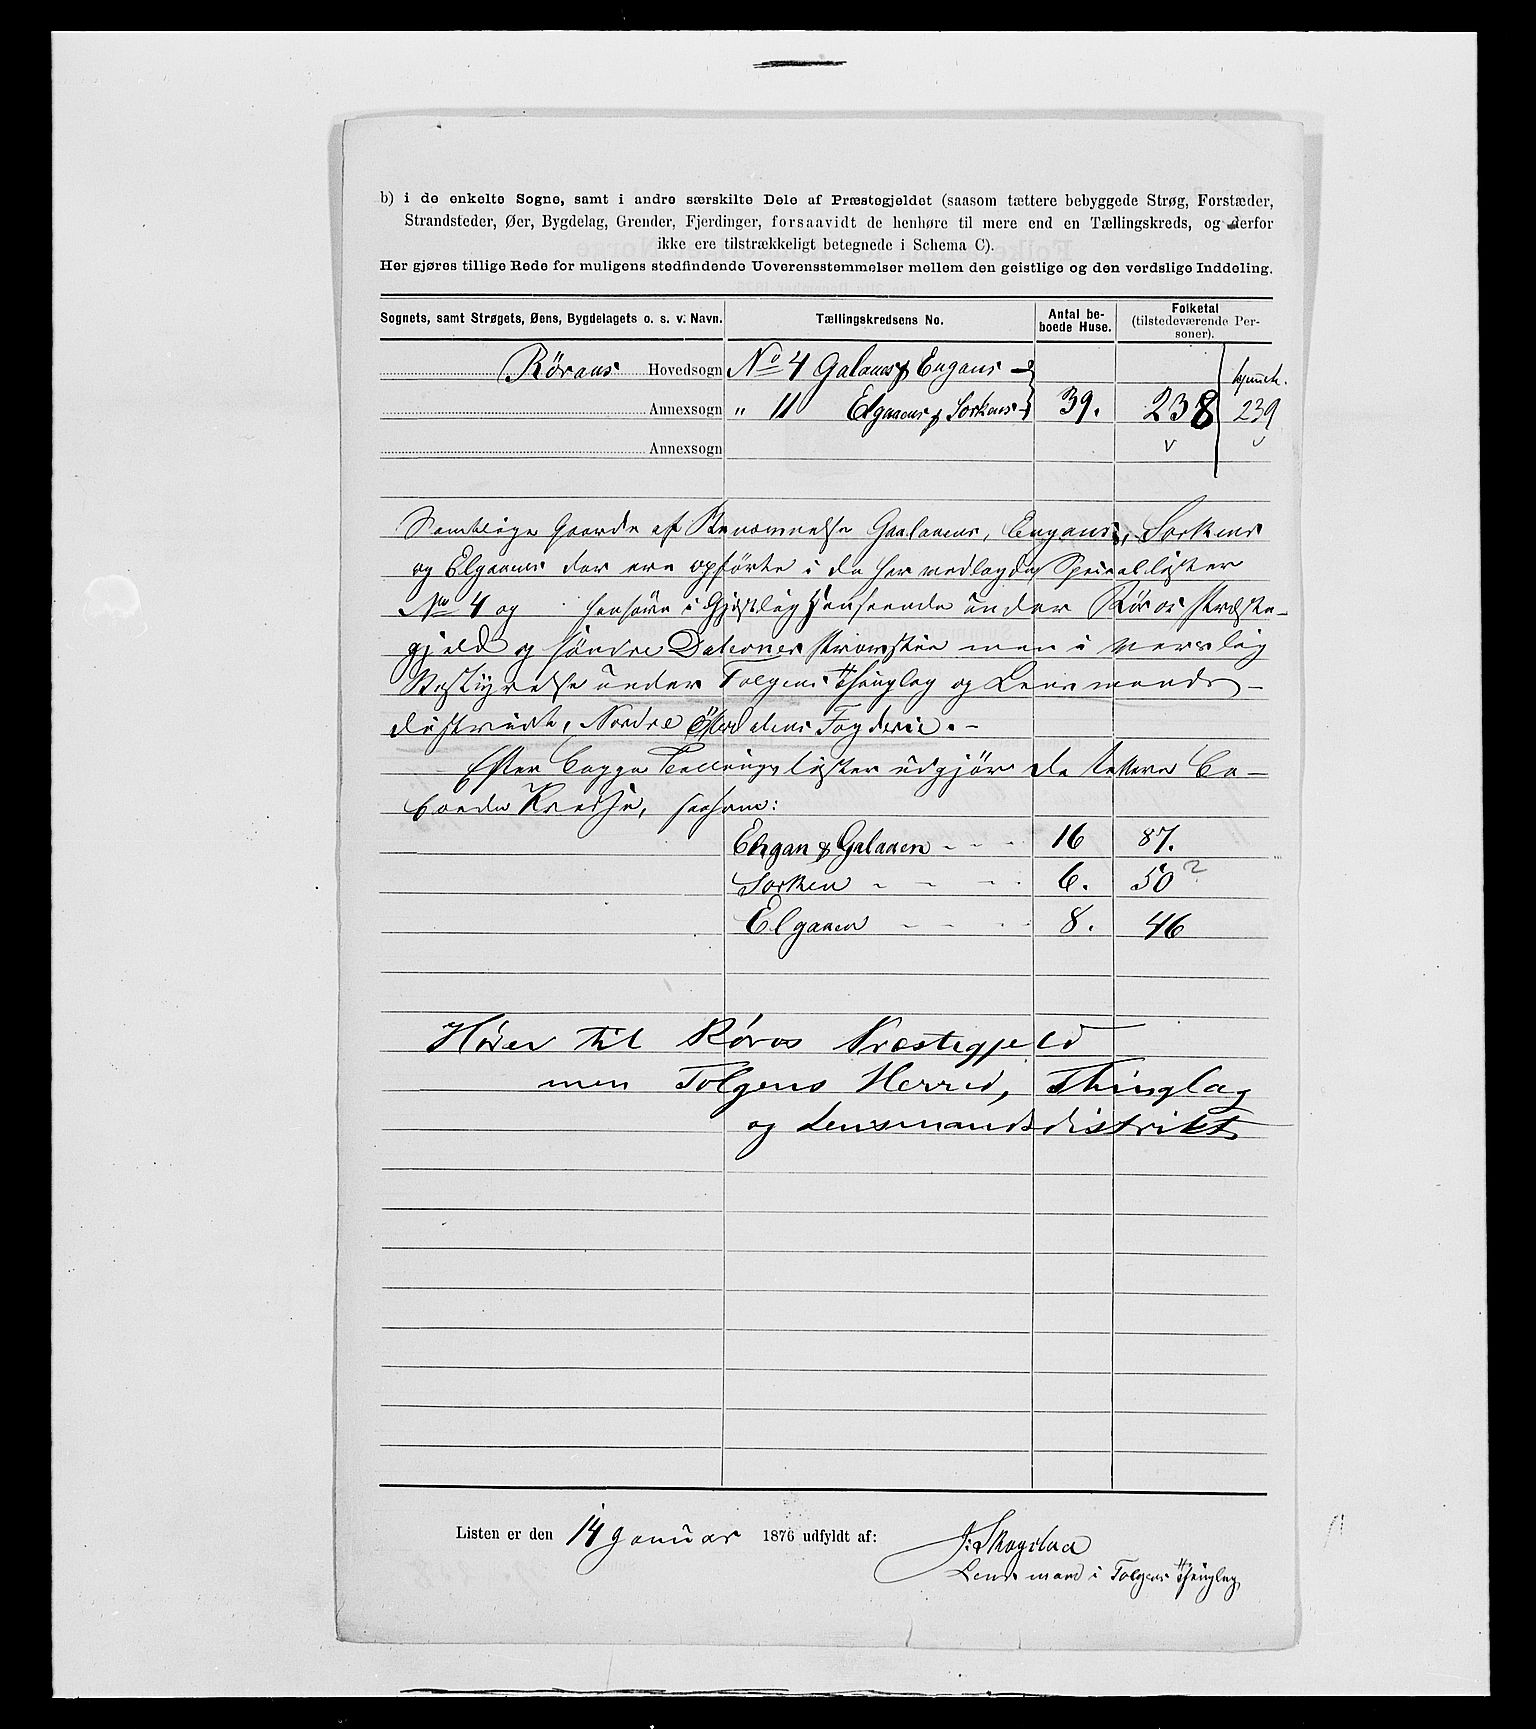 b) i de enkelte Sogne, samt i andre særskilte Dele af Præstegjeldet (saasom tættere bebyggede Strøg, Forstæder,
Strandsteder, Øer, Bygdelag, Grender, Fjerdinger, forsaavidt de henhøre til mere end en Tællingskreds, og derfor
ikke ere tilstrækkeligt betegnede i Schema C).
Her gjøres tillige Rede for muligens stedfindende Uoverensstemmelser mellem den geistlige og den verdslige Inddeling.
Sognets, samt Strøgets, Øens, Bygdelagets o. s. v. Navn.
Tællingskredsens No.
Antal be-
boede Huse.
Folketal
(tilstedeværende Per-
soner).
Röraas Hovedsogn No 4 Galaaens & Engans
Annexsogn " 11 Elgaaens & Sorkens 39. 238 239
Annexsogn
Samtlige Gaarde af Benævnelse Gaalaaens, Engans, Sorkens
og Elgaaens der ere opførte i de her vedlagde Speciallister
No 4 og henhøre i Gjestlig Henseende under Röros Præste-
gjeld og söndre Dalernes Provstie men i verslig
Bestyrelse under Tolgens Thinglag og Lensmands-
distrikt, Nordre Österdalens Fogderie. -
Efter begge Tellingslister udgjör de tættere be-
boede Kredse, saasom:
Engan & Galaaen - - - 16 87.
Sorken - - - 6. 50 ?
Elgaaen - - - 8. 46
Hører til Røros Præstegjeld
men Tolgens Herred, Thinglag
og Lensmandsdistrikt
Listen er den 14 Januar 1876 udfyldt af:
J. Skogstad
Lensmand i Tolgens Thinglag